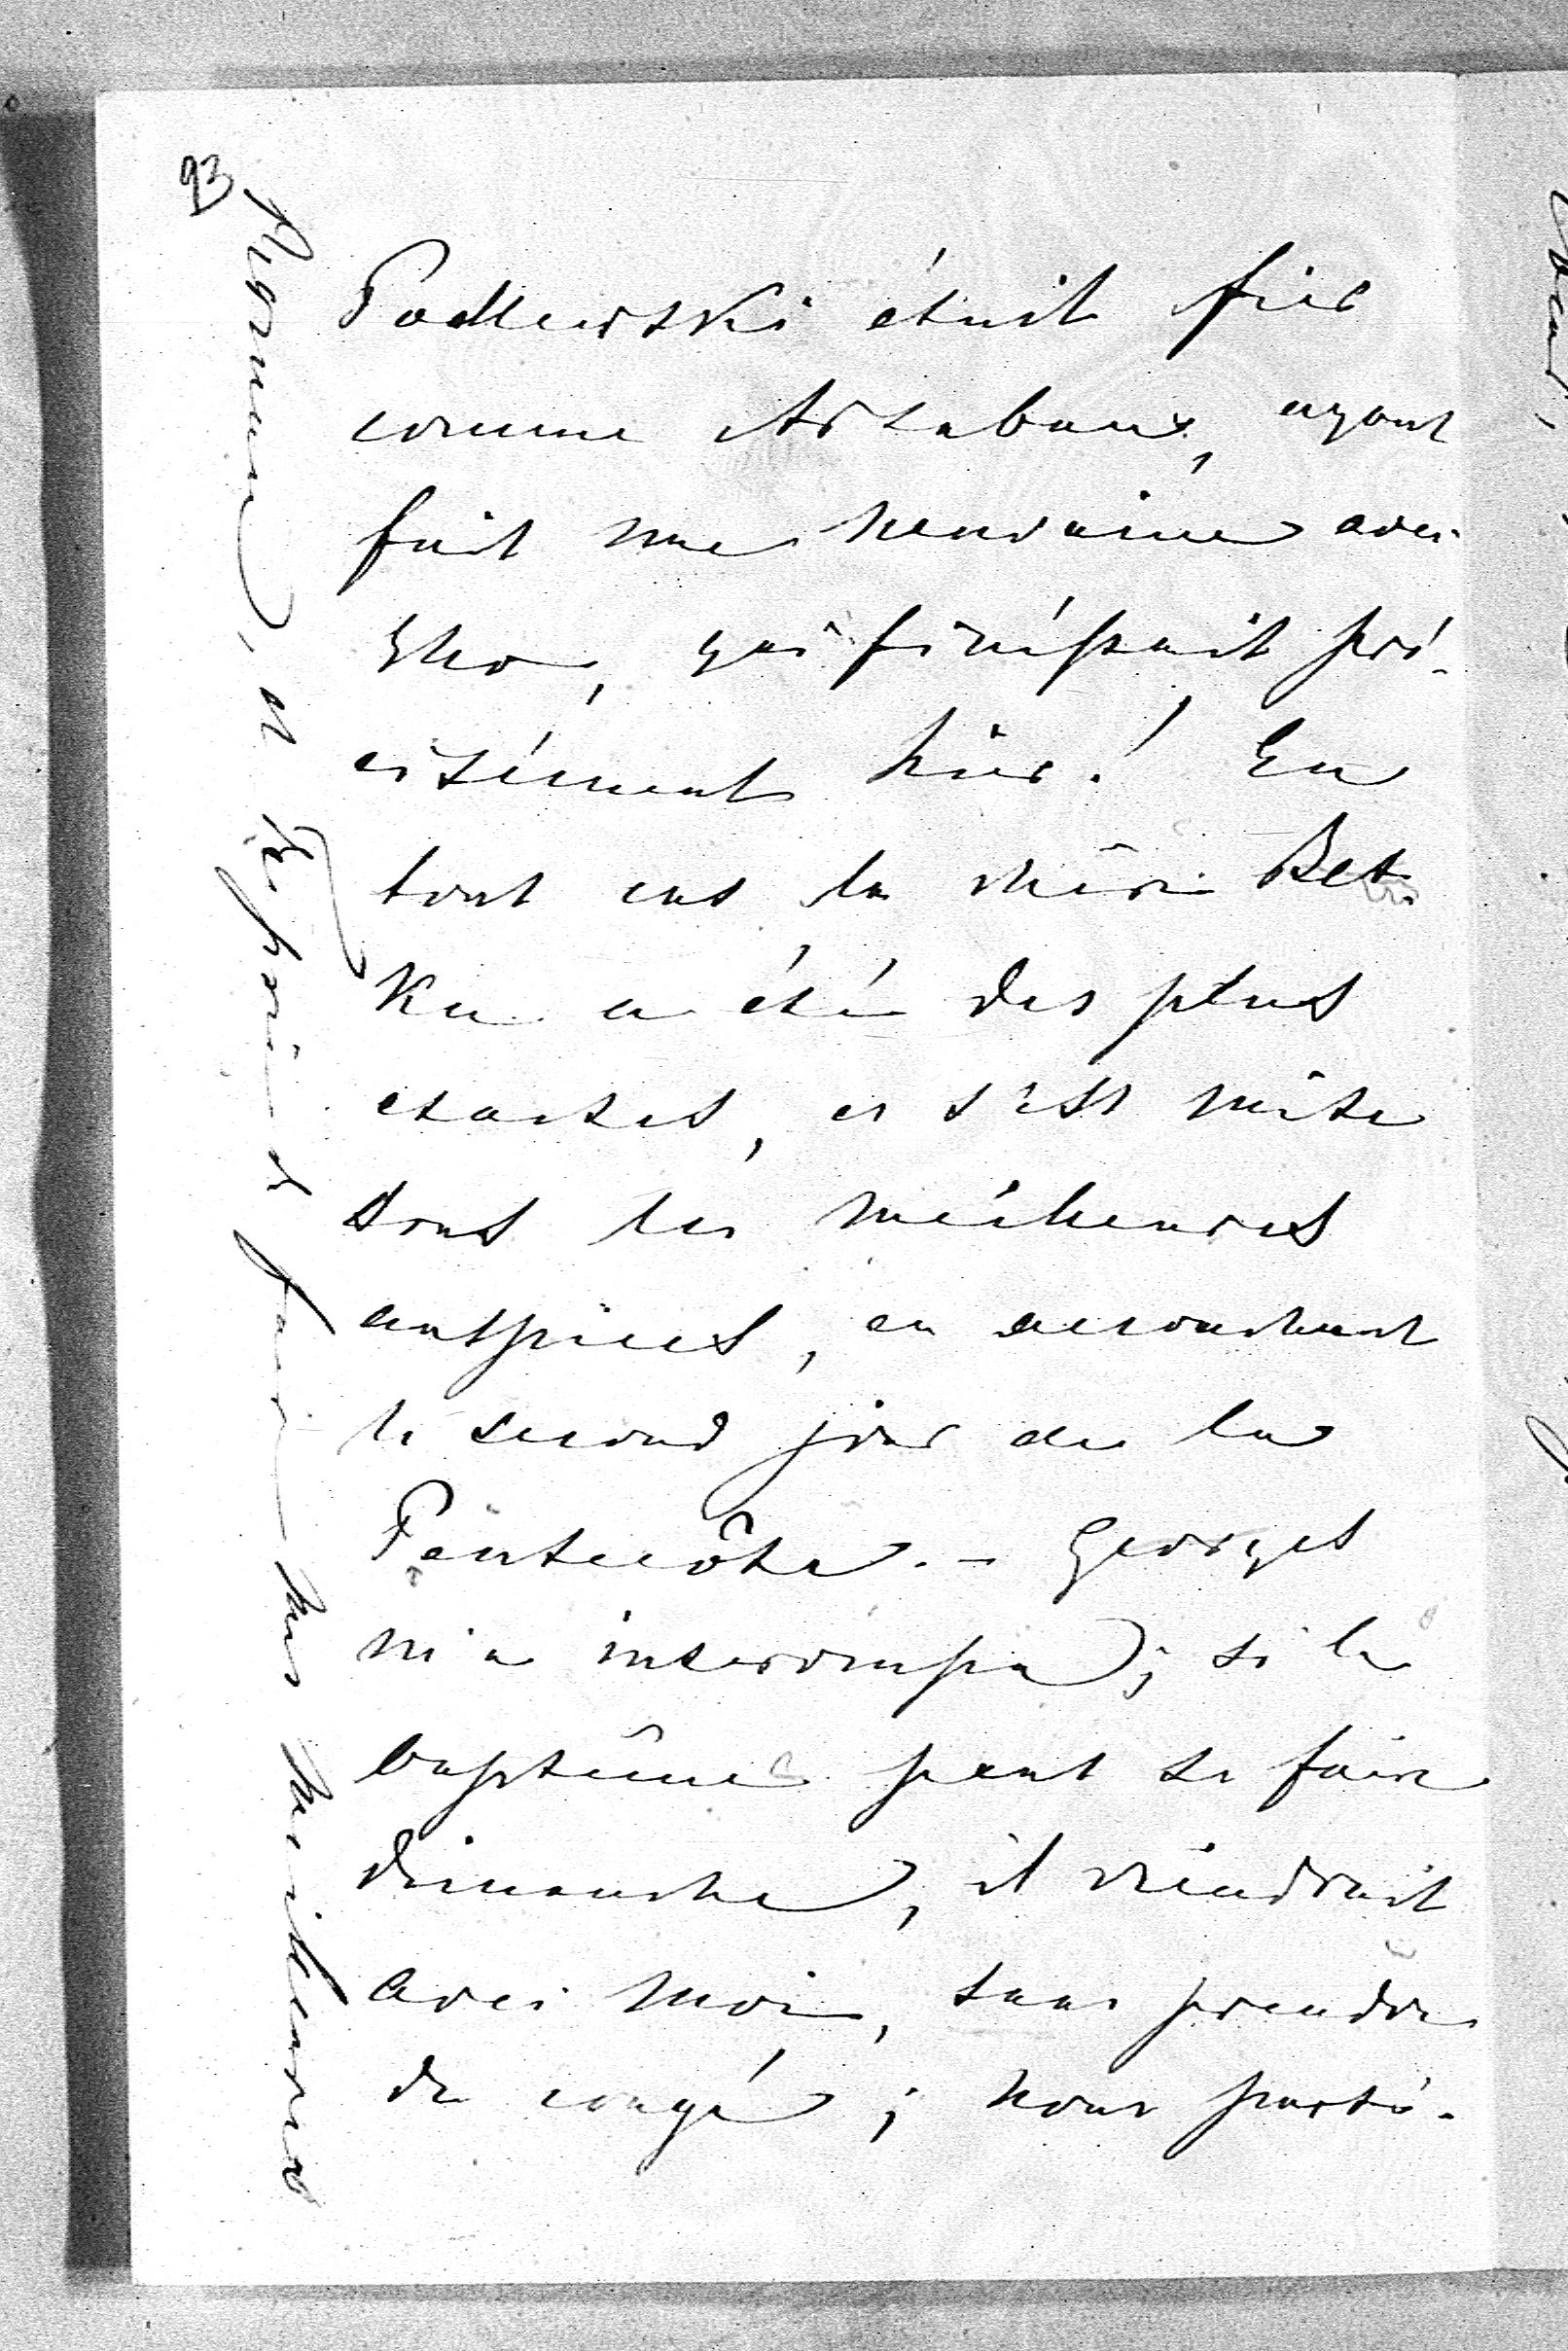 93
Podlewski était fier
comme Artaban, ayant
fait une neuvaine avec
Elko, qui finissait pré-
cisément hier! En
tout cas la chère Bet-
Ka a été des plus
exactes, et s'est mise
sous les meilleures
auspices, en accouchant
le second jour de la
Pentecôte. – Georges
m'a interrompu; si le
baptême peut se faire
dimanche, il viendrait
avec moi, sans prendre
de congé; nous parti-
et de faire mes meilleurs